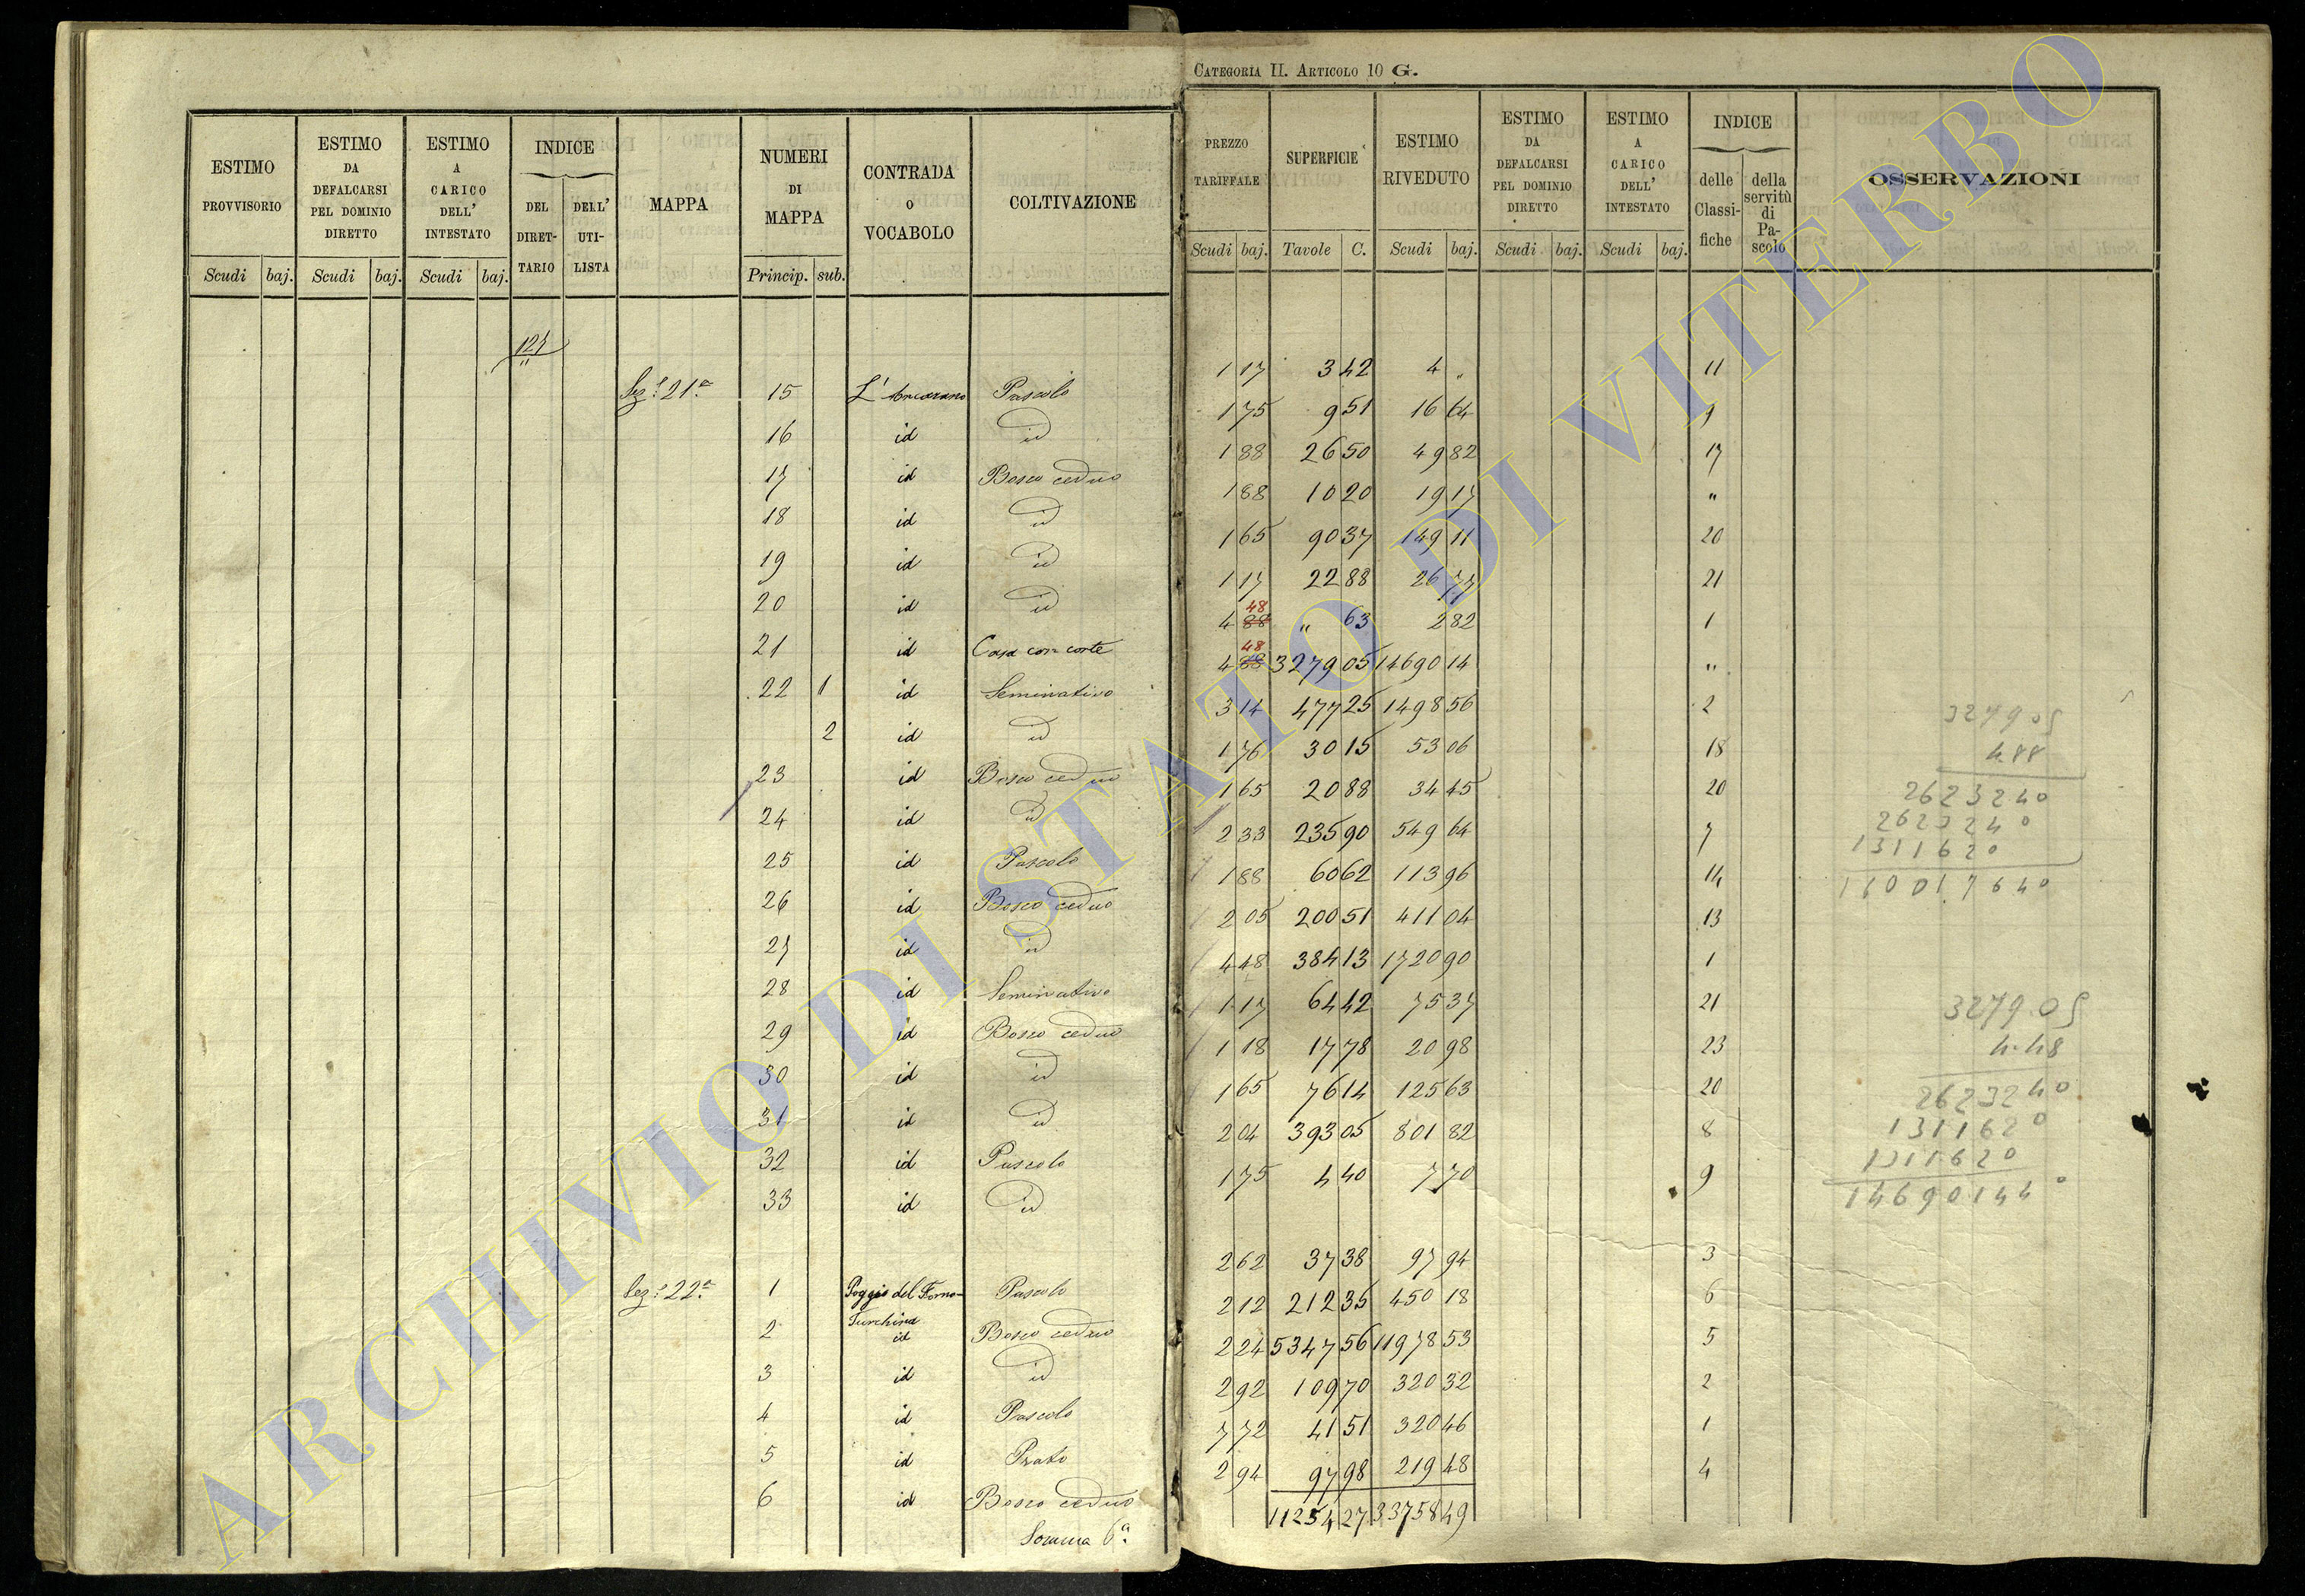 CATEGORIA II. ARTICOLO 10 G.
ESTIMO PROVVISORIO | ESTIMO DA DEFALCARSI PEL DOMINIO DIRETTO | ESTIMO A CARICO DELL' INTESTATO | INDICE DEL DIRET-TARIO | DELL' UTI-LISTA | MAPPA | NUMERI DI MAPPA | CONTRADA O VOCABOLO | COLTIVAZIONE | PREZZO TARIFFALE | SUPERFICIE | ESTIMO RIVEDUTO | ESTIMO DA DEFALCARSI PEL DOMINIO DIRETTO | ESTIMO A CARICO DELL' INTESTATO | INDICE delle Classi-fiche | della servitù di Pa-scolo | OSSERVAZIONI
Scudi baj. | Scudi baj. | Scudi baj. | Princip. sub. | Scudi baj. | Tavole C. | Scudi baj. | Scudi baj. | Scudi baj.
Sez.e 21a 15 L'Ancarano Pascolo 1 17 3 42 4 „ 11
16 id id 1 75 9 51 16 64 9
17 id Bosco ceduo 1 88 26 50 49 82 17
18 id id 1 88 10 20 19 17 "
19 id id 1 65 90 37 149 11 20
20 id id 1 17 22 88 26 77 21
21 id Casa con corte 4 88 48 " 63 2 82 1
22 1 id Seminativo 4 88 48 3279 05 14690 14 "
2 id id 3 14 477 25 1498 56 2
23 id Bosco ceduo 1 76 30 15 53 06 18
24 id id 1 65 20 88 34 45 20
25 id Pascolo 2 33 235 90 549 64 7
26 id Bosco ceduo 1 88 60 62 113 96 14
27 id id 2 05 200 51 411 04 13
28 id Seminativo 4 48 384 13 1720 90 1
29 id Bosco ceduo 1 17 64 42 75 37 21
30 id id 1 18 17 78 20 98 23
31 id id 1 65 76 14 125 63 20
32 id Pascolo 2 04 393 05 801 82 8
33 id id 1 75 4 40 7 70 9
Sez.e 22a 1 Poggio del Forno- Turchina Pascolo 2 62 37 38 97 94 3
2 id Bosco ceduo 2 12 212 35 450 18 6
3 id id 2 24 5347 56 11978 53 5
4 id Pascolo 2 92 109 70 320 32 2
5 id Prato 7 72 41 51 320 46 1
6 id Bosco ceduo 2 94 97 98 219 48 4
Somma 6a 11254 27 33758 49
3279.05
4.88
2623240
2623240
1311620
160017640
3279.05
4.48
2623240
1311620
1311620
146901440
ARCHIVIO DI STATO DI VITERBO